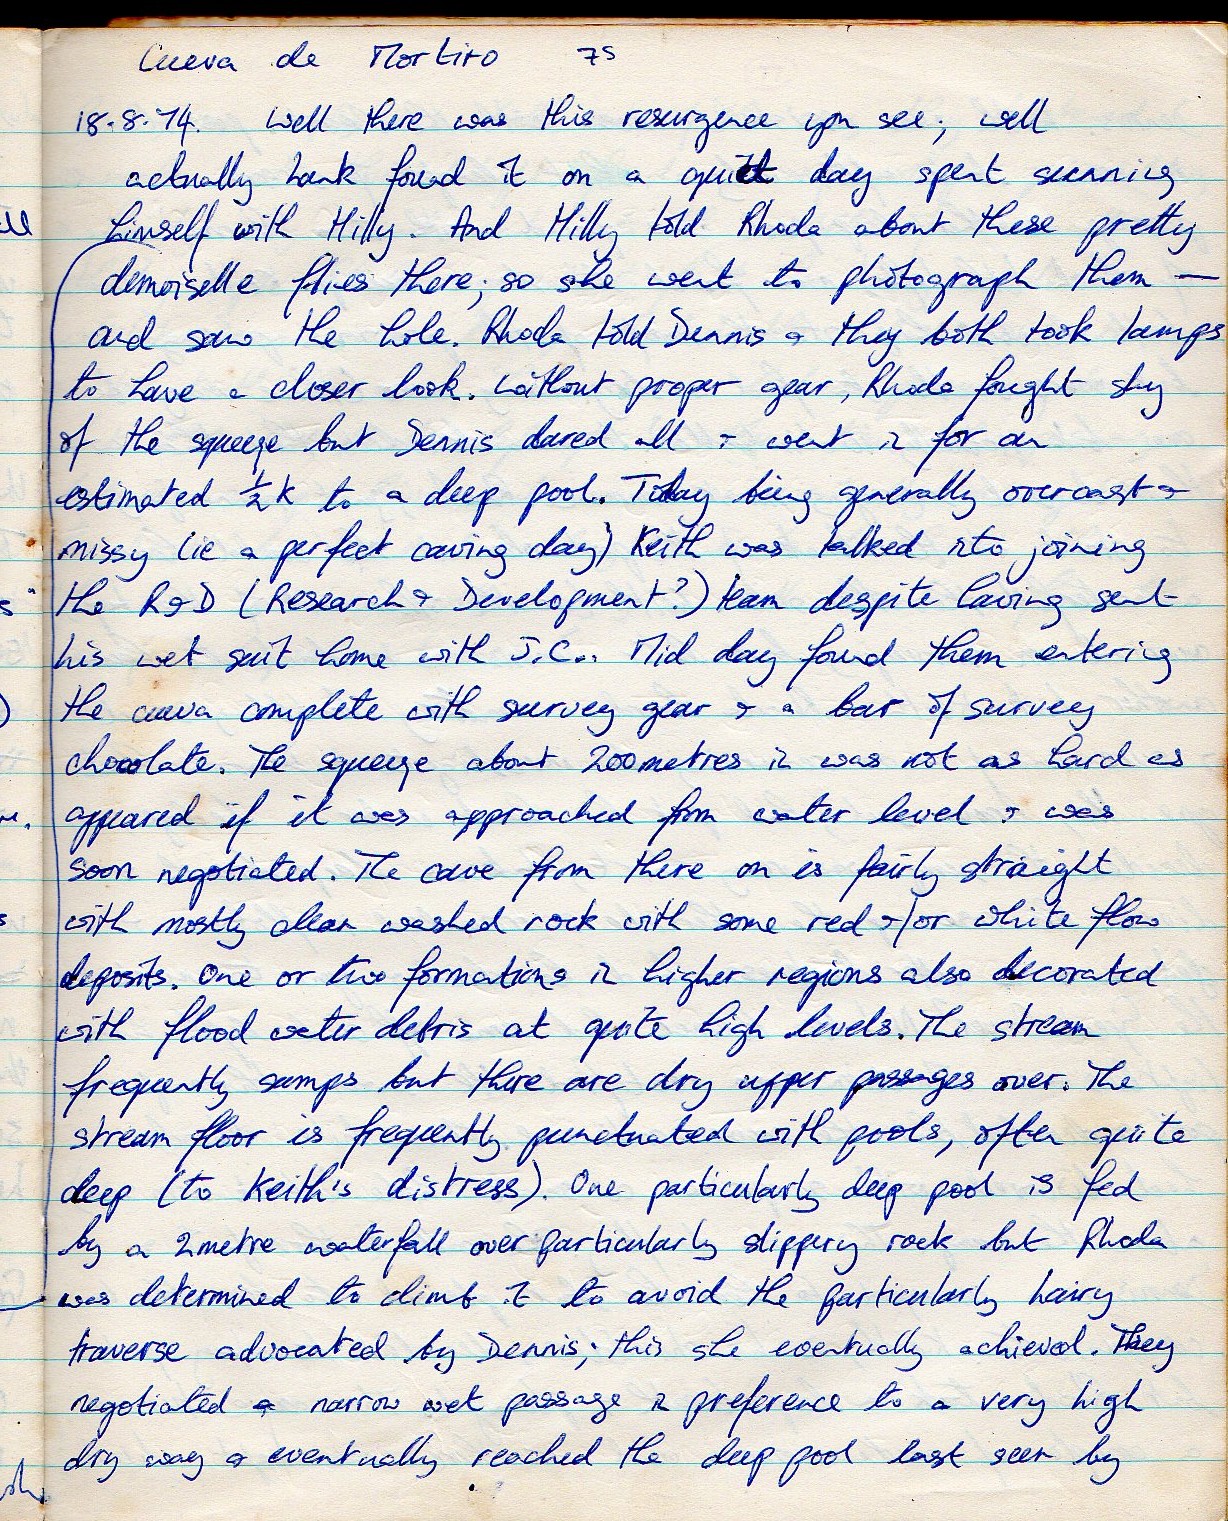 Cueva de Mortiro 75
18.8.74. Well there was this resurgence you see; well
actually Hank found it on a quiet day spent sunning
himself with Milly. And Milly told Rhoda about these pretty
demoiselle flies there; so she went to photograph them —
and saw the hole. Rhoda told Dennis & they both took lamps
to have a closer look. Without proper gear, Rhoda fought shy
of the squeeze but Dennis dared all & went in for an
estimated ½k to a deep pool. Today being generally overcast &
missy (ie a perfect caving day) Keith was talked into joining
the R&D (Research & Development?) team despite having sent
his wet suit home with J.C.. Mid day found them entering
the cueva complete with survey gear & a bar of survey
chocolate. The squeeze about 200metres in was not as hard as
appeared if it was approached from water level & was
soon negotiated. The cave from there on is fairly straight
with mostly clean washed rock with some red &/or white flow
deposits. One or two formations in higher regions also decorated
with flood water debris at quite high levels. The stream
frequently sumps but there are dry upper passages over. The
stream floor is frequently punctuated with pools, often quite
deep (to Keith's distress). One particularly deep pool is fed
by a 2metre waterfall over particularly slippery rock but Rhoda
was determined to climb it to avoid the particularly hairy
traverse advocated by Dennis; this she eventually achieved. They
negotiated a narrow wet passage in preference to a very high
dry way & eventually reached the deep pool last seen by